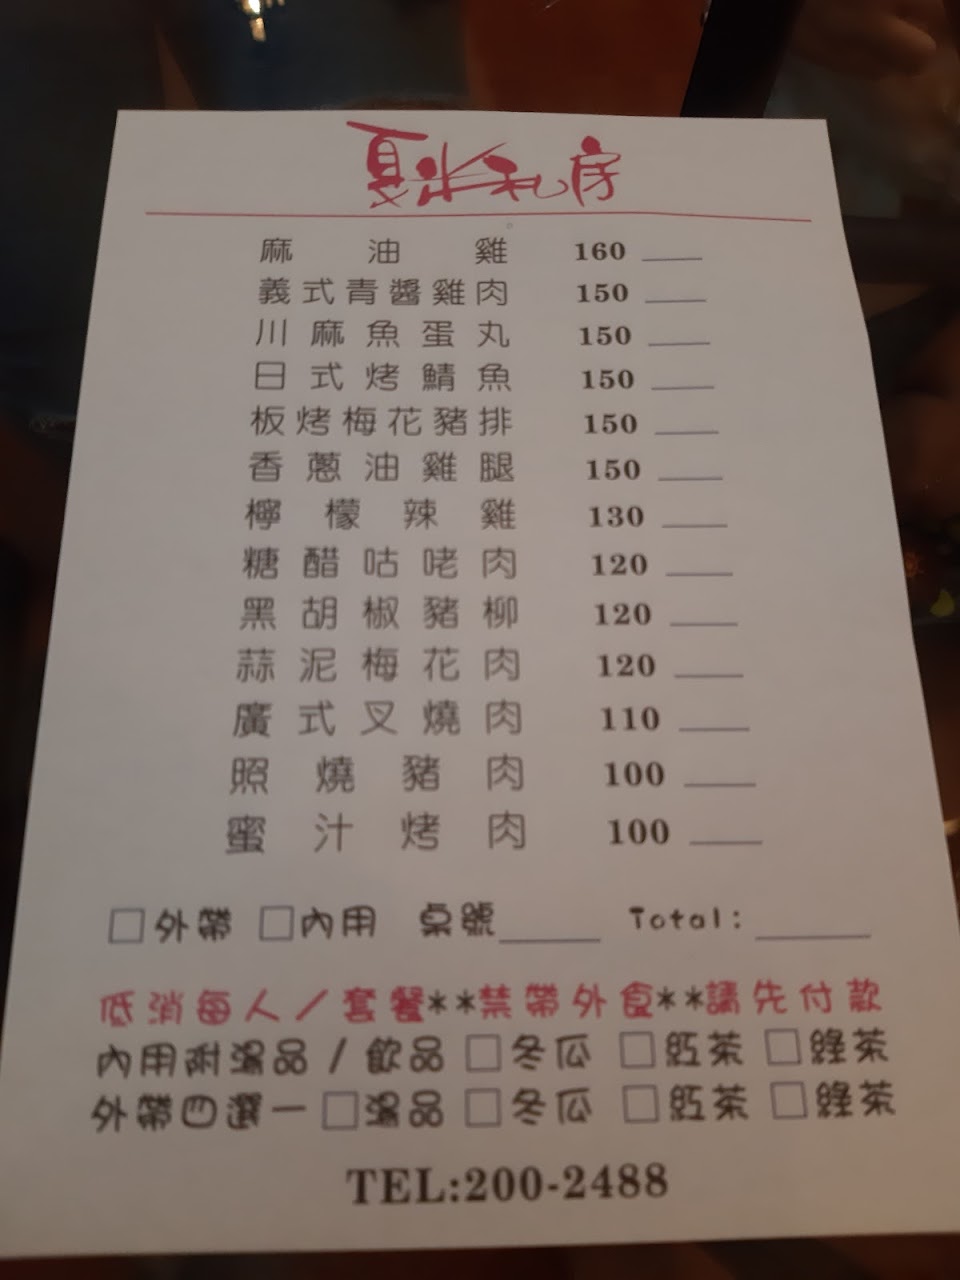 夏米私房
麻油雞 160
義式青醬雞肉 150
川麻魚蛋丸 150
日式烤鯖魚 150
板烤梅花豬排 150
香蔥油雞腿 150
檸檬辣雞 130
糖醋咕咾肉 120
黑胡椒豬柳 120
蒜泥梅花肉 120
廣式叉燒肉 110
照燒豬肉 100
蜜汁烤肉 100
□外帶 □內用 桌號_____ Total:_____
低消每人/套餐**禁帶外食**請先付款
內用附湯品/飲品 □冬瓜 □紅茶 □綠茶
外帶四選一 □湯品 □冬瓜 □紅茶 □綠茶
TEL:200-2488